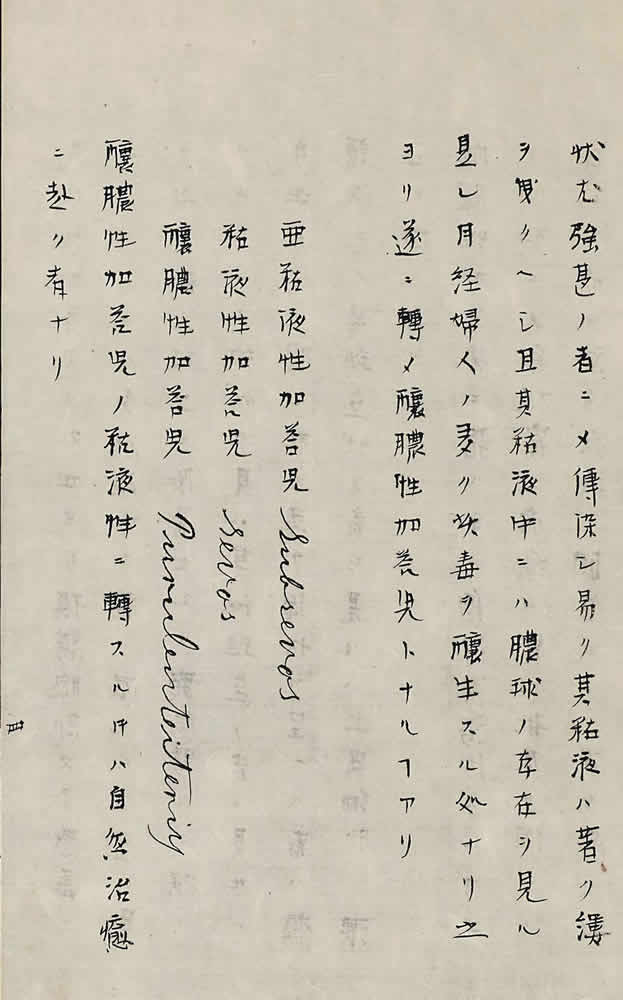 状尤強甚ノ者ニメ傳染シ易ク其粘液ハ著ク濃
ヲ曳クヘシ且其粘液中ニハ膿球ノ存在ヲ見ル
是レ月経婦人ノ多ク此毒ヲ釀生スル処ナリ之
ヨリ遂ニ轉メ釀膿性加荅児トナルヿアリ
亜粘液性加荅児 Subseros
粘液性加荅児 Seros
釀膿性加荅児
釀膿性加荅児ノ粘液性ニ轉スル片ハ自然治癒
ニ赴ク者ナリ
四